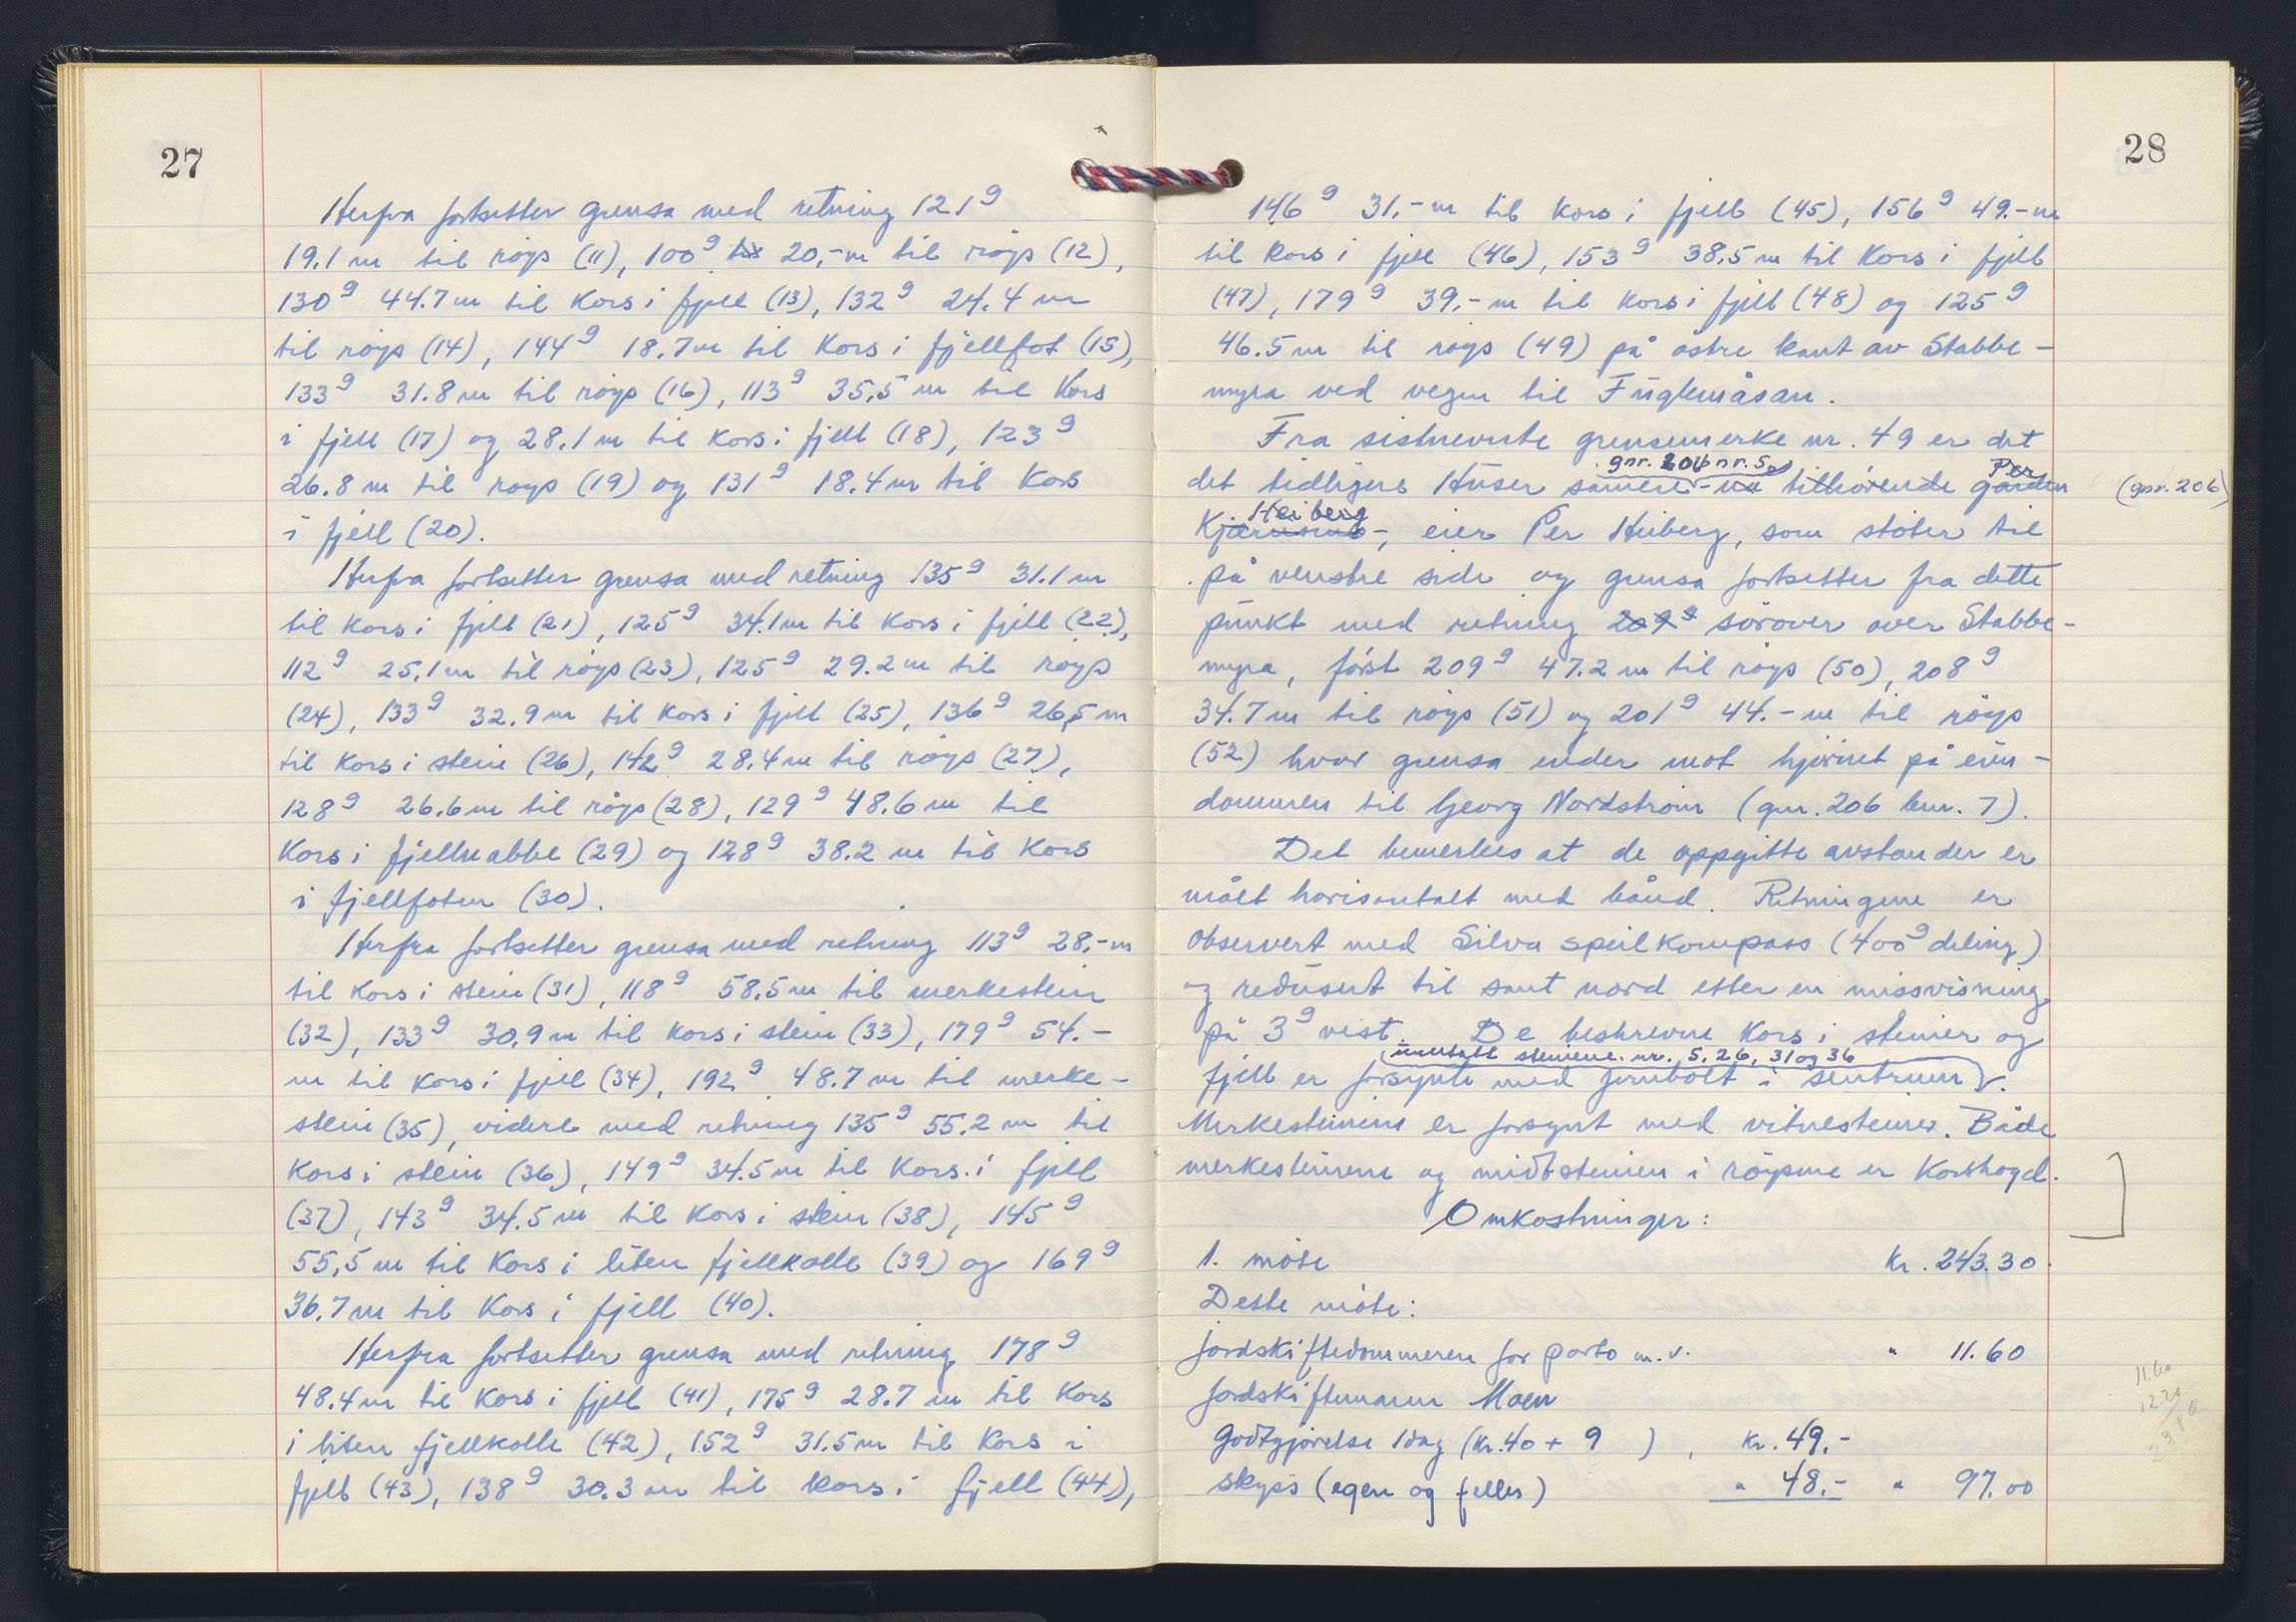 27
Herfra fortsetter grensa med retning 121g
19.1 m til röys (11), 100g til 20,- m til röys (12),
130g 44.7 m til kors i fjell (13), 132g 24.4 m
til röys (14), 144g 18.7 m til kors i fjellfot (15),
133g 31.8 m til röys (16), 113g 35,5 m til kors
i fjell (17) og 28.1 m til kors i fjell (18), 123g
26.8 m til röys (19) og 131g 18.4 m til kors
i fjell (20).
Herfra fortsetter grensa med retning 135g 31.1 m
til kors i fjell (21), 125g 34.1 m til kors i fjell (22),
112g 25.1 m til röys (23), 125g 29.2 m til röys
(24), 133g 32.9 m til kors i fjell (25), 136g 26,5 m
til kors i stein (26), 142g 28.4 m til röys (27),
128g 26.6 m til röys (28), 129g 48.6 m til
kors i fjellnabbe (29) og 128g 38.2 m til kors
i fjellfoten (30).
Herfra fortsetter grensa med retning 113g 28,- m
til kors i stein (31), 118g 58.5 m til merkestein
(32), 133g 30.9 m til kors i stein (33), 179g 54.-
m til kors i fjell (34), 192g 48.7 m til merke-
stein (35), videre med retning 135g 55.2 m til
kors i stein (36), 149g 34.5 m til kors i fjell
(37), 143g 34.5 m til kors i stein (38), 145g
55,5 m til kors i liten fjellkolle (39) og 169g
36.7 m til kors i fjell (40).
Herfra fortsetter grensa med retning 178g
48.4 m til kors i fjell (41), 175g 28.7 m til kors
i liten fjellkolle (42), 152g 31.5 m til kors i
fjell (43), 138g 30.3 m til kors i fjell (44),
28
146g 31,- m til kors i fjell (45), 156g 49.- m
til kors i fjell (46), 153g 38,5 m til kors i fjell
(47), 179g 39,- m til kors i fjell (48) og 125g
46.5 m til röys (49) på östre kant av Stabbe-
myra ved vegen til Fuglemåsan.
Fra sistnevnte grensemerke nr. 49 er det
gnr. 206 bnr. 5 Per
det tidligere Huser sameie - nå tilhörende gården (gnr. 206)
Heiberg
Kjærnsmo -, eier Per Heiberg, som stöter til
på venstre side og grensa fortsetter fra dette
punkt med retning 209g sörover over Stabbe-
myra, först 209g 47.2 m til röys (50), 208g
34.7 m til röys (51) og 201g 44.- m til röys
(52) hvor grensa ender mot hjörnet på eien-
dommen til Georg Nordström (gnr. 206 bnr. 7).
Det bemerkes at de oppgitte avstander er
målt horisontalt med bånd. Retningene er
observert med Silva speilkompass (400g deling)
og redusert til sant nord etter en missvisning
på 3g vest. De beskrevne kors i steiner og
unntatt steinene nr. 5, 26, 31 og 36
fjell er forsynt med jernbolt i sentrum.
Merkesteinene er forsynt med vitnesteiner. Både
merkesteinene og midtsteinen i röysene er korshogd.
Omkostninger:
1. möte kr. 243.30
Dette möte:
Jordskiftedommeren for porto m.v. " 11.60
Jordskiftemann Moen
Godtgjörelse 1 dag (kr. 40 + 9 ), kr. 49.-
skyss (egen og felles) " 48.- " 97.00
11.60